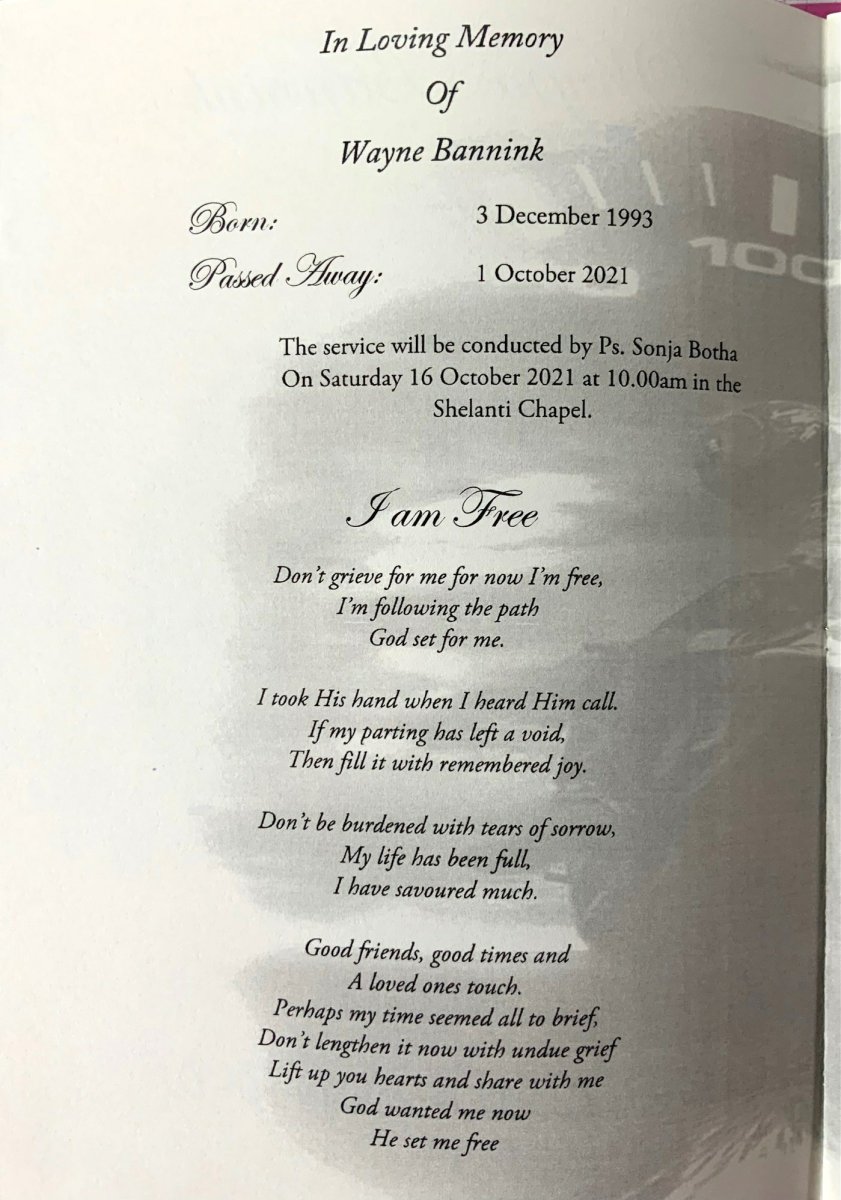 In Loving Memory
Of
Wayne Bannink
Born: 3 December 1993
Passed Away: 1 October 2021
100
The service will be conducted by Ps. Sonja Botha
On Saturday 16 October 2021 at 10.00am in the
Shelanti Chapel.
I am Free
Don't grieve for me for now I'm free,
I'm following the path
God set for me.
I took His hand when I heard Him call.
If my parting has left a void,
Then fill it with remembered joy.
Don't be burdened with tears of sorrow,
My life has been full,
I have savoured much.
Good friends, good times and
A loved ones touch.
Perhaps my time seemed all to brief,
Don't lengthen it now with undue grief
Lift up you hearts and share with me
God wanted me now
He set me free